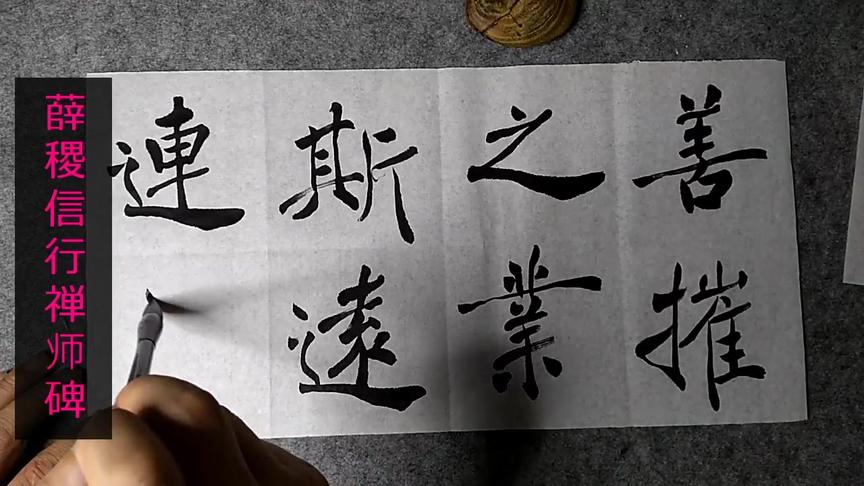 薛稷信行禅师碑
善摧
之業
斯遠
連